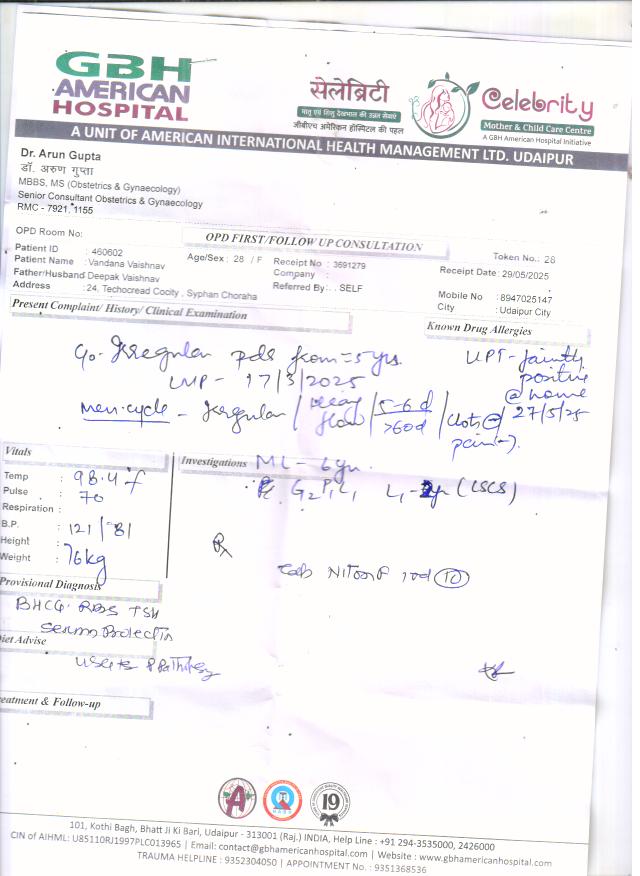 GBH
AMERICAN
HOSPITAL
सेलेब्रिटी
मातृ एवं शिशु देखभाल की उन्नत सेवाएं
जीबीएच अमेरिकन हॉस्पिटल की पहल
Celebrity
Mother & Child Care Centre
A GBH American Hospital Initiative
A UNIT OF AMERICAN INTERNATIONAL HEALTH MANAGEMENT LTD. UDAIPUR
Dr. Arun Gupta
डॉ. अरुण गुप्ता
MBBS, MS (Obstetrics & Gynaecology)
Senior Consultant Obstetrics & Gynaecology
RMC - 7921, 1155
OPD Room No:
OPD FIRST/FOLLOW UP CONSULTATION
Token No.: 28
Patient ID : 460602
Patient Name : Vandana Vaishnav
Age/Sex : 28 / F
Receipt No : 3691279
Receipt Date : 29/05/2025
Father/Husband Deepak Vaishnav
Company :
Address : 24, Techocread Cocity , Syphan Choraha
Referred By: . SELF
Mobile No : 8947025147
City : Udaipur City
Present Complaint/ History/ Clinical Examination
Known Drug Allergies
Irregular pds from = 5 yrs.
LMP - 17/3/2025
UPT - faintly
positive
@ home
27/5/25
Men. cycle - Irregular / Heavy flow / 5-6 d / >60d / Clots
pain
Vitals
Temp : 98.4 f
Pulse : 70
Respiration :
B.P. : 121/81
Height :
Weight : 76kg
Investigations
ML - 6yr.
G2 P1 L1 L1 - 2yr (LSCS)
Rx
Tab 1 od 10
Provisional Diagnosis
BHCG RBS TSH
Serum Prolactin
Diet Advise
USG
Treatment & Follow-up
A
19
101, Kothi Bagh, Bhatt Ji Ki Bari, Udaipur - 313001 (Raj.) INDIA, Help Line : +91 294-3535000, 2426000
CIN of AIHML: U85110RJ1997PLC013965 | Email: contact@gbhamericanhospital.com | Website : www.gbhamericanhospital.com
TRAUMA HELPLINE : 9352304050 | APPOINTMENT No. : 9351368536